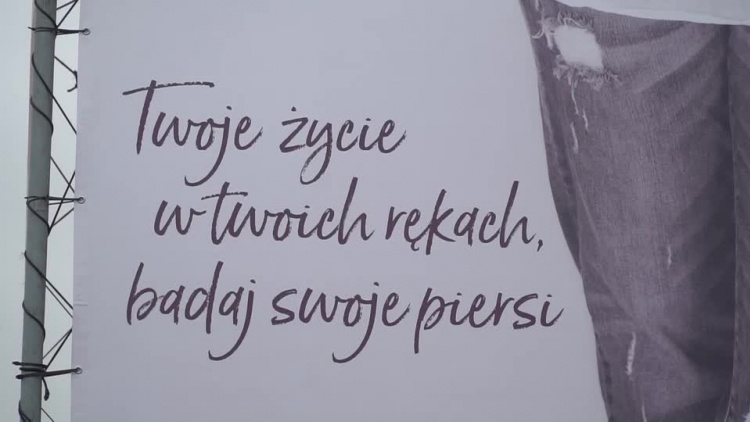 Twoje życie
w twoich rękach,
badaj swoje piersi